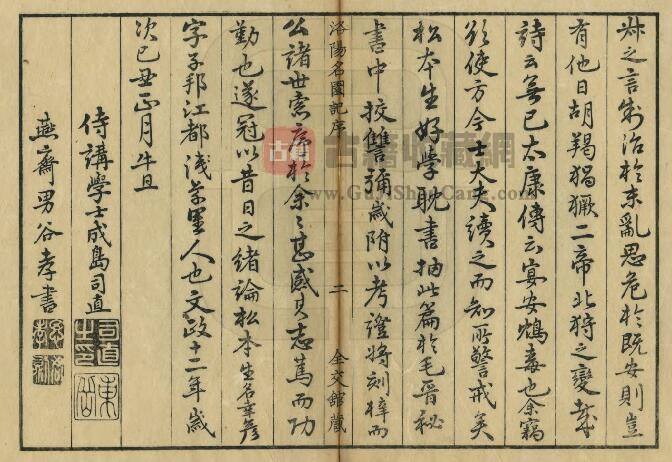 之言制治於未亂思危於既安則豈
有他日胡羯猖獗二帝北狩之變哉
詩云無已太康傳云宴安鴆毒也余竊
欲使方今士大夫讀之而知所警戒矣
松本生好學耽書抽此篇於毛晋秘
書中挍讐彌歲附以考證将刻梓而
洛陽名園記序
二
全交館藏
公諸世索序於余々甚感其志篤而功
勤也遂冠以昔日之緒論松本生名幸彦
字子邦江都浅草里人也文政十二年歲
次己丑正月牛旦
侍講學士成島司直
燕齋男谷孝書
司直之印
東
古籍收藏網
www.GuJiShouCang.com